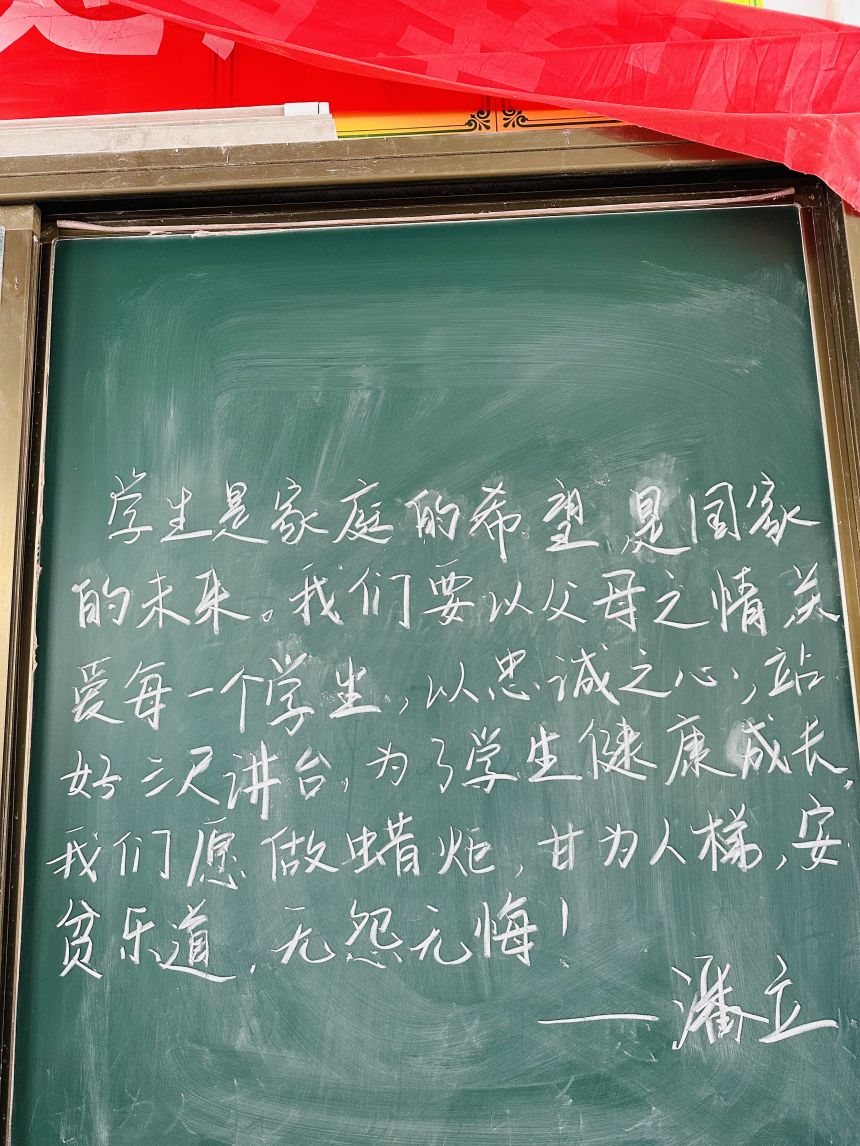 学生是家庭的希望,是国家
的未来。我们要以父母之情关
爱每一个学生,以忠诚之心,站
好三尺讲台,为了学生健康成长,
我们愿做蜡炬,甘为人梯,安
贫乐道,无怨无悔!
——潘立